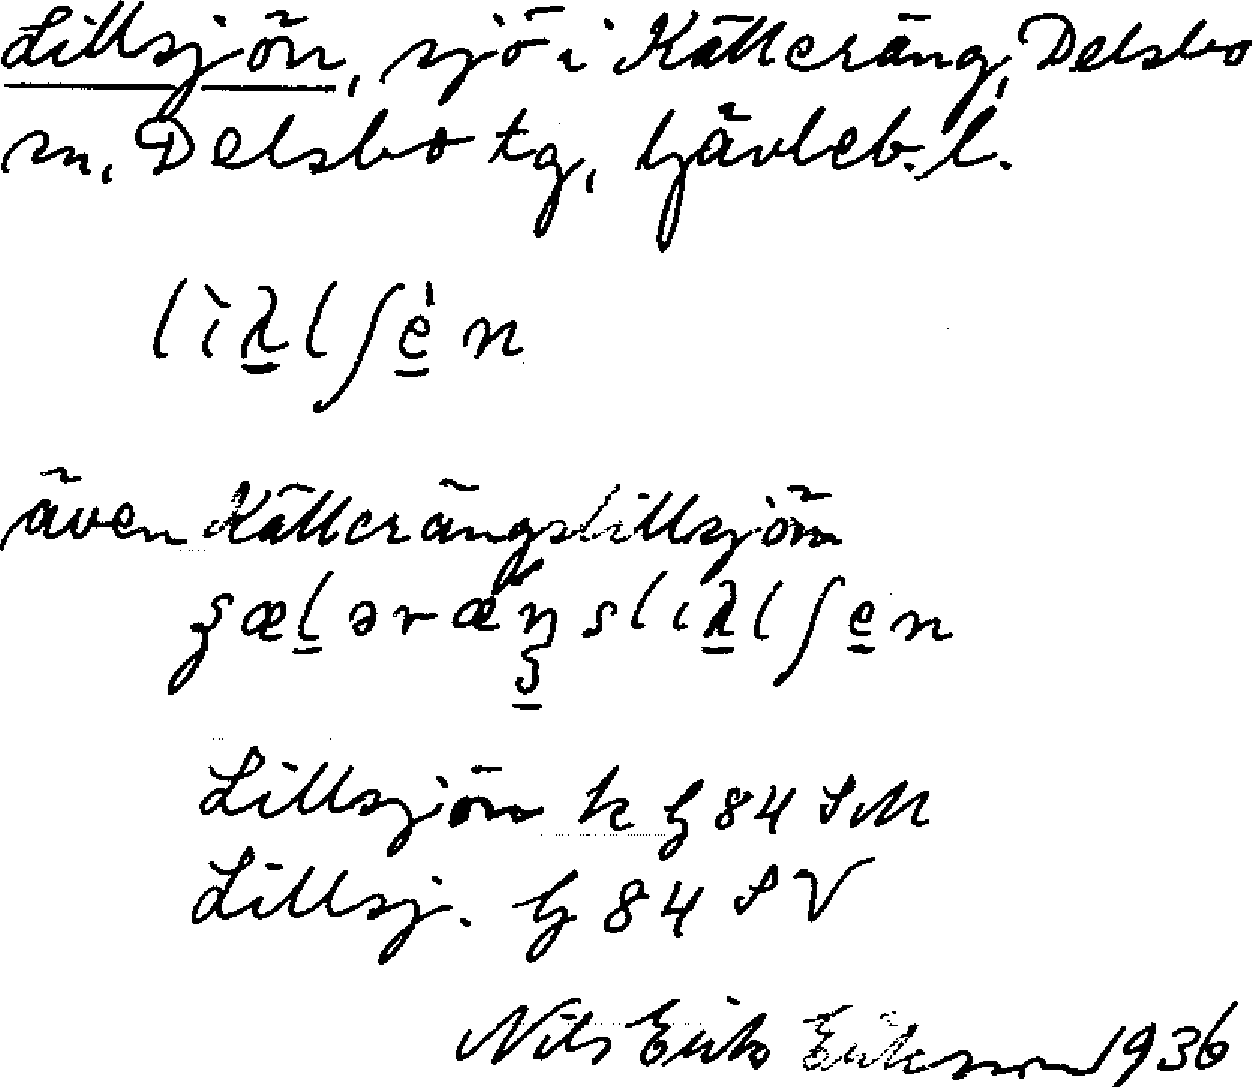 Lillsjön, sjö i Källeräng, Delsbo
sn, Delsbo tg, Gävleb. l.
även Källerängslillsjön
Lillsjön k G 84 SM
Lillsj. G 84 SV
Nils Eriks Eriksson 1936